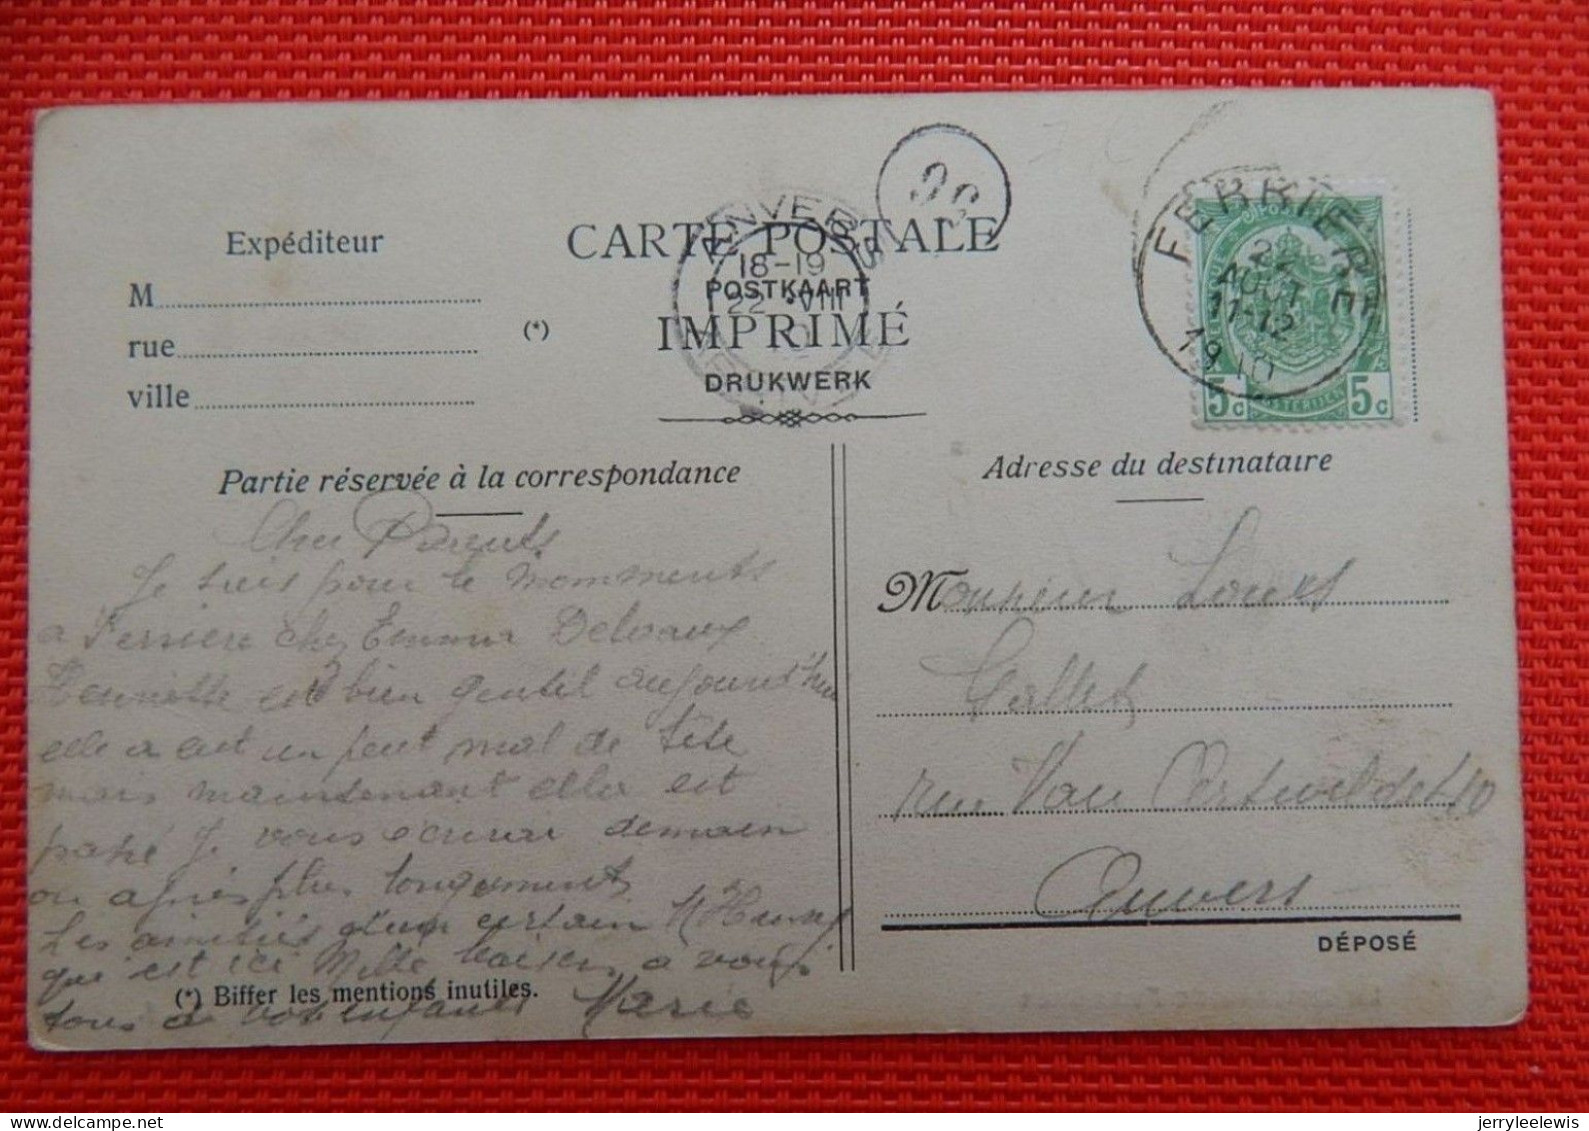 Expéditeur
M
rue
ville
(*)
CARTE POSTALE
POSTKAART
IMPRIMÉ
DRUKWERK
ANVERS
18-19
22 VIII
FERRIERE
22
AOUT
11-12
1910
5c 5c
Partie réservée à la correspondance
Cher Parents
Je suis pour le momments
a Ferriere chez Emma Delvaux
Henriette est bien gentil aujourd'hui
elle a eut un peut mal de tête
mais maintenant elle est
passé Je vous écrirai demain
ou après plus longuements
Les amitiés d'un certain
qui est ici Mille baisers a vous
(*) Biffer les mentions inutiles.
tous de votre enfant Marie
Adresse du destinataire
Monsieur Louis
Gallet
rue Van 10
Anvers
DÉPOSÉ
jerryleelewis